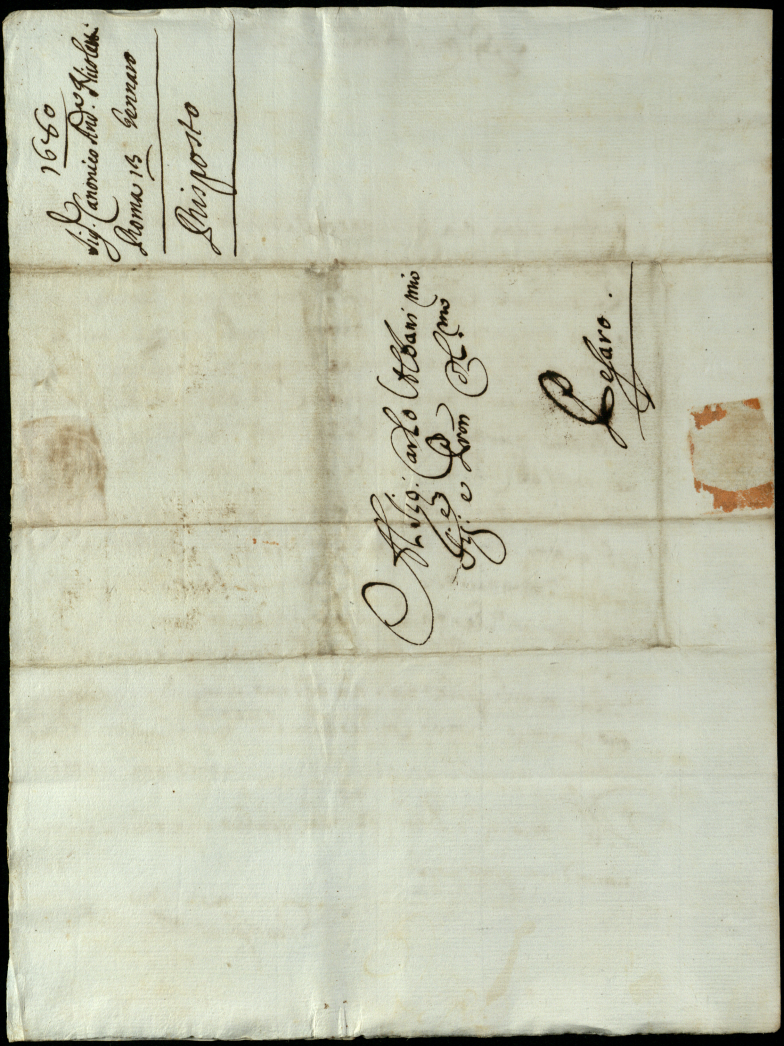 1680
Sig.r Canonico And.a Nicolani
Roma 13 Gennaro
Risposto
Al Sig.r Carlo Albani mio
Sig.re e Pron Col.mo
Pesaro.